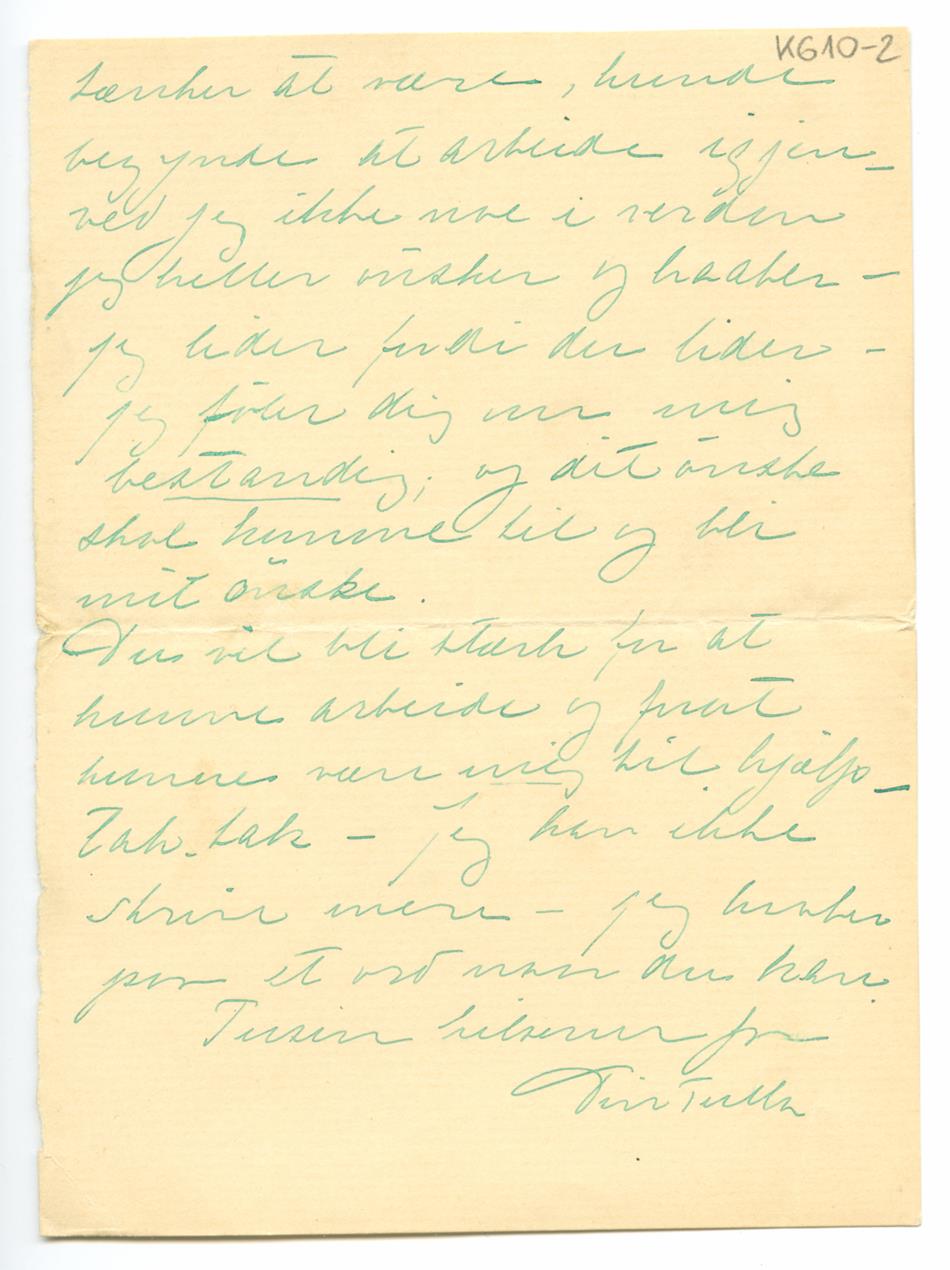 K610-2
tænker at være, kunde
begynde at arbeide igjen –
ved jeg ikke noe i verden
jeg heller önsker og haaber –
jeg lider fordi du lider –
jeg föler dig om mig
bestandig; og dit önske
skal komme til og bli
mit önske.
Du vil bli stærk for at
kunne arbeide og først
kunne være mig til hjælp –
Tak. tak – Jeg kan ikke
skrive mere – jeg haaber
paa et ord naar du kan.
Tusin hilsener fra
Din Tulla